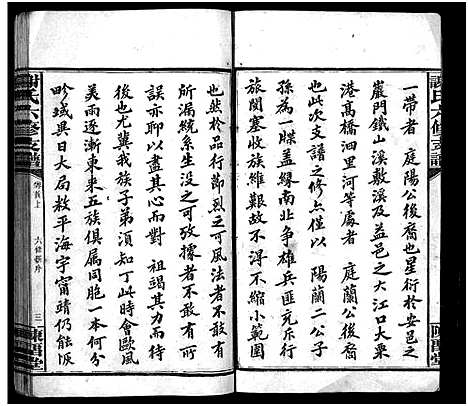 謝氏六修支譜
一帶者 庭陽公後裔也與安邑之
巖門鐵山溪敷溪及益邑之大江口大栗
港高橋泗里河等處者 庭蘭公後裔
也然此次支譜之修點僅以 陽蘭二公
孫為主蓋緣南北爭雄兵匪充斥行
旅閡塞收族維艱故不得不縮小範圍
也然於品行節烈之可風法者不敢有
所漏統系生歿之可攷據者不敢有所
誤亦聊以盡其心而對 祖竭其力而
後也尤冀我族子弟須知丁此時會歐風
美雨逐漸東來五族俱屬同胞一本何分
畛域異日大局敉平海宇甯靖仍能恢
謝氏六修支譜
卷首上
六修譜序
三
陳留堂